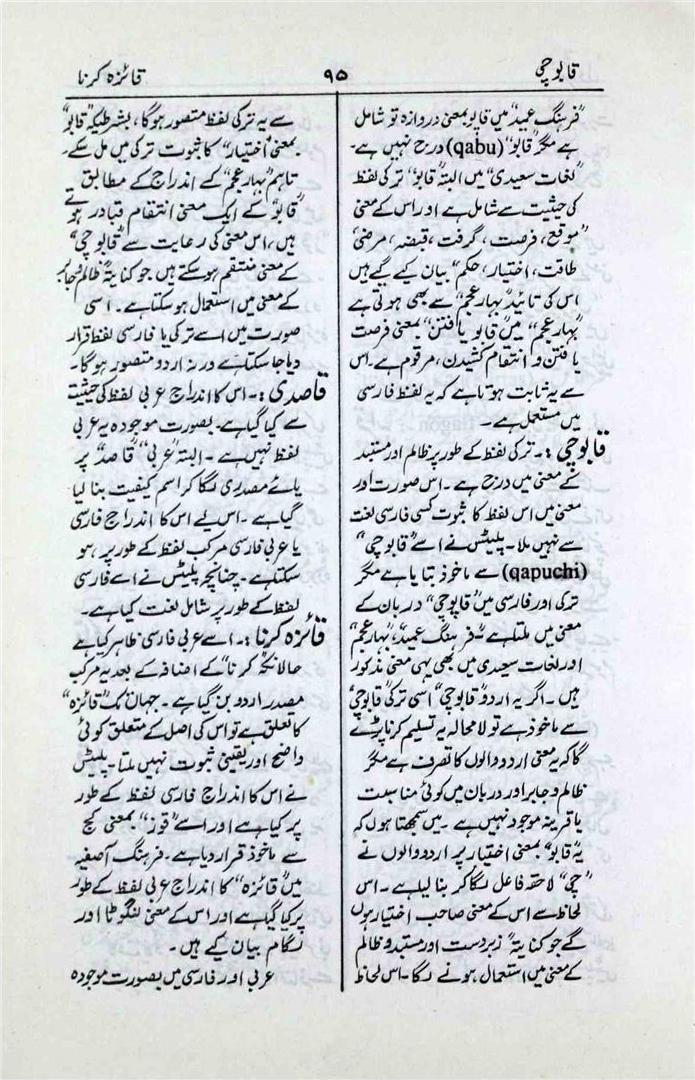 قابوچی
۹۵
قائزہ کرنا
”فرہنگ عمید“ میں قاپو بمعنی دروازہ تو شامل
ہے مگر ”قابو“ (qabu) درج نہیں ہے۔
”لغات سعیدی“ میں البتہ ”قابو“ ترکی لفظ
کی حیثیت سے شامل ہے اور اس کے معنی
”موقع، فرصت، گرفت، قبضہ، مرضی،
طاقت، اختیار، حکم“ بیان کیے گیے ہیں
اس کی تائید ”بہار عجم“ سے بھی ہوتی ہے
”بہار عجم“ میں ”قابو یافتن“ بمعنی فرصت
یافتن و انتقام کشیدن، مرقوم ہے۔ اس
سے یہ ثابت ہوتا ہے کہ یہ لفظ فارسی
میں مستعمل ہے۔
قابوچی :۔ ترکی لفظ کے طور پر ظالم اور مستبد
کے معنی میں درج ہے۔ اس صورت اور
معنی میں اس لفظ کا ثبوت کسی فارسی لغت
سے نہیں ملا۔ پلیٹس نے اسے ”قاپوچی“
(qapuchi) سے ماخوذ بتایا ہے مگر
ترکی اور فارسی میں ”قاپوچی“ دربان کے
معنی میں ملتا ہے ”فرہنگ عمید“، ”بہار عجم“
اور لغات سعیدی میں بھی یہی معنی مذکور
ہیں۔ اگر یہ اردو ”قابوچی“ اسی ترکی ”قاپوچی“
سے ماخوذ ہے تو لامحالہ یہ تسلیم کرنا پڑے
گا کہ یہ معنی اردو والوں کا تصرف ہے مگر
ظالم و جابر اور دربان میں کوئی مناسبت
یا قرینہ موجود نہیں ہے۔ میں سمجھتا ہوں کہ
یہ ”قابو“ بمعنی اختیار پر اردو والوں نے
”چی“ لاحقہ فاعل لگا کر بنا لیا ہے۔ اس
لحاظ سے اس کے معنی صاحب اختیار ہوں
گے جو کنایتہً زبردست اور مستبد و ظالم
کے معنی میں استعمال ہونے لگا۔ اس لحاظ
سے یہ ترکی لفظ متصور ہوگا، بشرطیکہ ”قابو“
بمعنی ”اختیار“ کا ثبوت ترکی میں مل سکے۔
تاہم ”بہار عجم“ کے اندراج کے مطابق
”قابو“ کے ایک معنی انتقام متبادر ہوتے
ہیں، اس معنی کی رعایت سے ”قابوچی“
کے معنی منتقم ہو سکتے ہیں جو کنایتہً ظالم و جابر
کے معنی میں استعمال ہو سکتا ہے۔ اسی
صورت میں اسے ترکی یا فارسی لفظ قرار
دیا جا سکتا ہے ورنہ اردو متصور ہوگا۔
قاصدی :۔ اس کا اندراج عربی لفظ کی حیثیت
سے کیا گیا ہے۔ بصورت موجودہ یہ عربی
لفظ نہیں ہے۔ البتہ ”عربی“ ”قاصد“ پر
یائے مصدری لگا کر اسم کیفیت بنا لیا
گیا ہے۔ اس لیے اس کا اندراج فارسی
یا عربی فارسی مرکب لفظ کے طور پر ہو
سکتا ہے۔ چنانچہ پلیٹس نے اسے فارسی
لفظ کے طور پر شامل لغت کیا ہے۔
قائزہ کرنا :۔ اسے عربی فارسی ظاہر کیا ہے
حالانکہ ”کرنا“ کے اضافہ کے بعد یہ مرکب
مصدر اردو بن گیا ہے۔ جہاں تک ”قائزہ“
کا تعلق ہے تو اس کی اصل کے متعلق کوئی
واضح اور یقینی ثبوت نہیں ملتا۔ پلیٹس
نے اس کا اندراج فارسی لفظ کے طور
پر کیا ہے اور اسے ”قوز“ بمعنی کج
سے ماخوذ قرار دیا ہے۔ فرہنگ آصفیہ
میں ”قائزہ“ کا اندراج عربی لفظ کے طور
پر کیا گیا ہے اور اس کے معنی لنگوٹا اور
لگام بیان کیے ہیں۔
عربی اور فارسی میں بصورت موجودہ